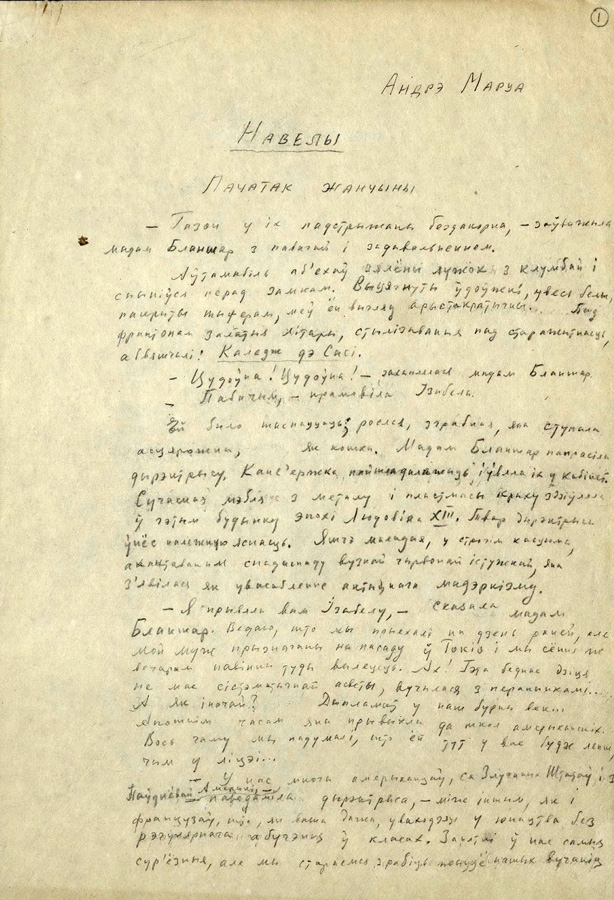 1
Андрэ Маруа
Навелы
Пачатак жанчыны
— Газон у іх падстрыжаны бездакорна, — заўважыла
мадам Бланшар з павагай і задавальненнем.
Аўтамабіль аб'ехаў зялёны лужок з клумбай і
спыніўся перад замкам. Выцягнуты ўдоўжкі, увесь белы,
пакрыты шыферам, меў ён выгляд арыстакратычны... Над
фронтонам залатыя літары, стылізаваныя пад старажытнасць,
абвяшчалі: Каледж дэ Сісі.
— Цудоўна! Цудоўна! — мадам Бланшар.
— Пабачым, — прамовіла Ізабела.
Ёй было шаснаццаць; рослая, зграбная, яна ступала
асцярожна, як кошка. Мадам Бланшар папрасіла
дырэктрысу. Кансьержка і ўвяла іх у кабінет.
Сучасная мэбля з металу і пластмасы крыху здзіўляла
ў гэтым будынку эпохі Людовіка XIII. Твар дырэктрысы
ўнёс яснасць. Яшчэ маладая, у строгім касцюме,
вузкай чырвонай істужкай, яна
з'явілася як увасабленне мадэрнізму.
— Я прывяла вам Ізабелу, — сказала мадам
Бланшар. Ведаю, што мы прыехалі на дзень раней, але
мой муж прызначаны на пасаду ў Токіо і мы сёння ж
вечарам павінны туды вылецець. Ах! Гэта беднае дзіця
не мае сістэматычнай асветы, вучылася з перапынкамі...
А як іначай? Дыпламаты у наш бурны век...
Апошнім часам яна прывыкла да школ амерыканскіх.
Вось чаму мы падумалі, што ёй тут у вас будзе лепш,
чым у ліцэі...
— У нас многа амерыканцаў, са Злучаных Штатаў і з
Паўднёвай Амерыкі, — паведаміла дырэктрыса, — між іншым, як і
французаў, што, як ваша дачка, уваходзяць у юнацтва без
рэгулярнага абучэння ў класах. Заняткі ў нас самыя
сур'ёзныя, але мы стараемся зрабіць наших вучаніц